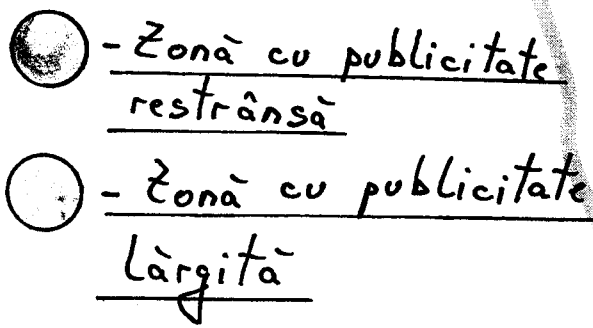 - Zonă cu publicitate
restrânsă
- Zonă cu publicitate
lărgită